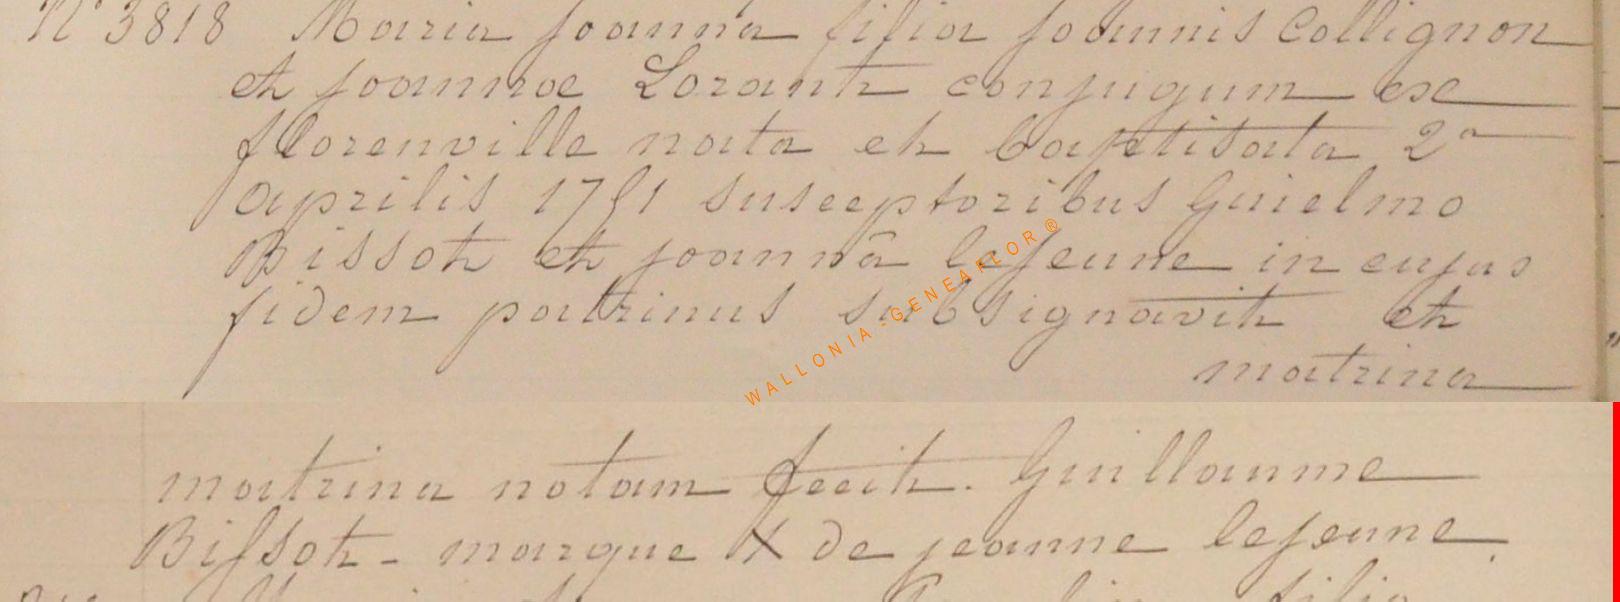 N° 3818 Maria Joanna filia Joannis Collignon
et Joannae Lorant conjugum ex
florenville nata et baptisata 2a
aprilis 1751 susceptoribus Guielmo
Bissot et joannâ lejeune in cujus
fidem patrinus subsignavit et
matrina
matrina notam fecit. Guillaume
Bissot - marque X de jeanne lejeune.
filia
WALLONIA-GENEAFLOR®